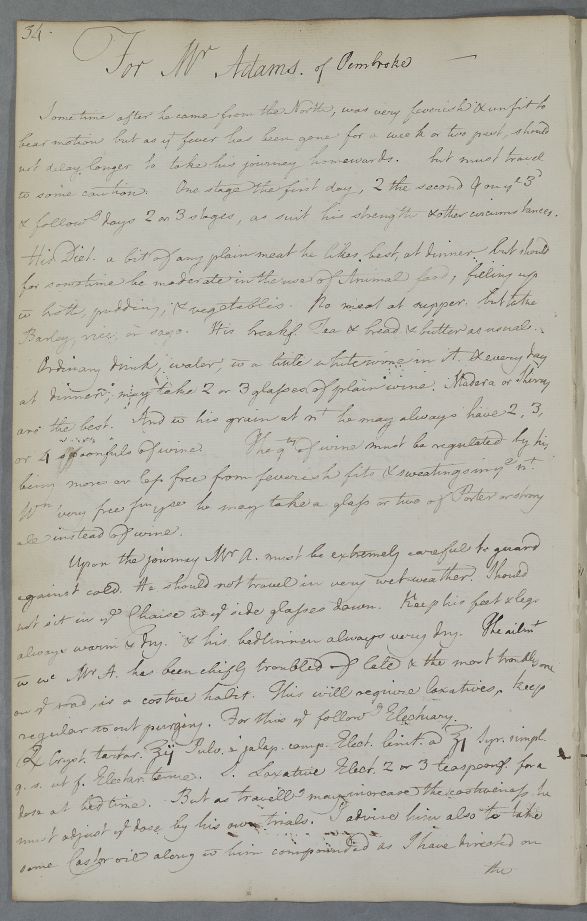 34.
For Mr Adams. of Pembroke
Sometime after he came from the North, was very feverish & unfit to
bear motion but as ye fever has been gone for a week or two past, should
not delay longer to take his journey homewards. but must travel
w some caution. One stage the first day, 2 the second & on ye 3d
& followg days 2 or 3 stages, as suit his strength & other circumstances.
His Diet. a bit of any plain meat he likes best, at dinner, but should
for sometime be moderate in the use of Animal food, filling up
w broth, pudding, & vegetables. No meat at supper. but take
Barley, rice, or sago. His breakf. Tea & bread & butter as usual.
Ordinary drink, water, w a little white wine in it. & every day
at dinner, may take 2 or 3 glasses of plain wine. Madera or Sherry
are the best. And w his grain at nt he may always have 2, 3,
or 4 spoonfuls of wine. The qty of wine must be regulated by his
being more or less free from feverish fits & sweatings in ye nt.
Wn very free from yse he may take a glass or two of Porter or strong
ale instead of wine.
Upon the journey Mr A. must be extremely careful to guard
against cold. He should not travel in very wet weather. Should
not sit in ye Chaise w ye side glasses down. Keep his feet & legs
always warm & dry. & his bedlinnen always very dry. The ailmt
w wc Mr A. has been chiefly troubled of late & the most troublesome
on ye road, is a costive habit. This will require laxatives, keep
regular wout purging. For this ye followg Electuary.
℞ Cryst. tartar. ʒij Pulv. e jalap. comp. Elect. lenit. a ʒj Syr. simpl.
q. s. ut f. Electar. tenue. S. Laxative Elect. 2 or 3 teaspoonf. for a
dose at bedtime. But as travellg may increase the costiveness he
must adjust ye dose by his own trials. I advise him also to take
some Castor oil along w him compounded as I have directed on
the